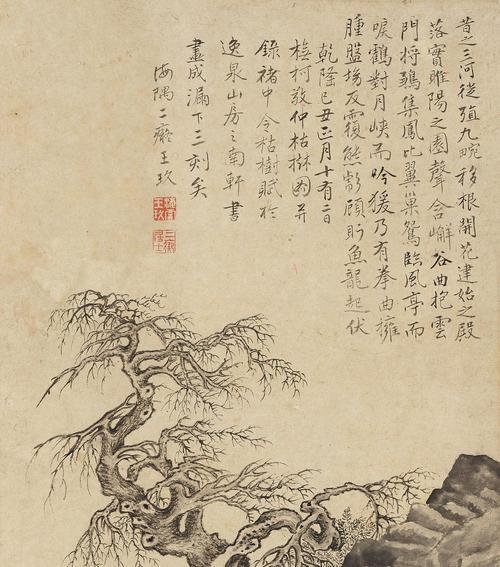 昔之三河徙殖九畹移根開花建始之殿
落實睢陽之園聲含嶰谷曲抱雲
門將鶵集鳳比翼巢鴛臨風亭而
唳鶴對月峽而吟猨乃有拳曲擁
腫盤坳反覆熊彪顧盼魚龍起伏
乾隆己丑正月十有二日
橅柯敬仲枯樹圖并
錄褚中令枯樹賦於
逸泉山房之南軒書
畫成漏下三刻矣
海隅二癡王玖